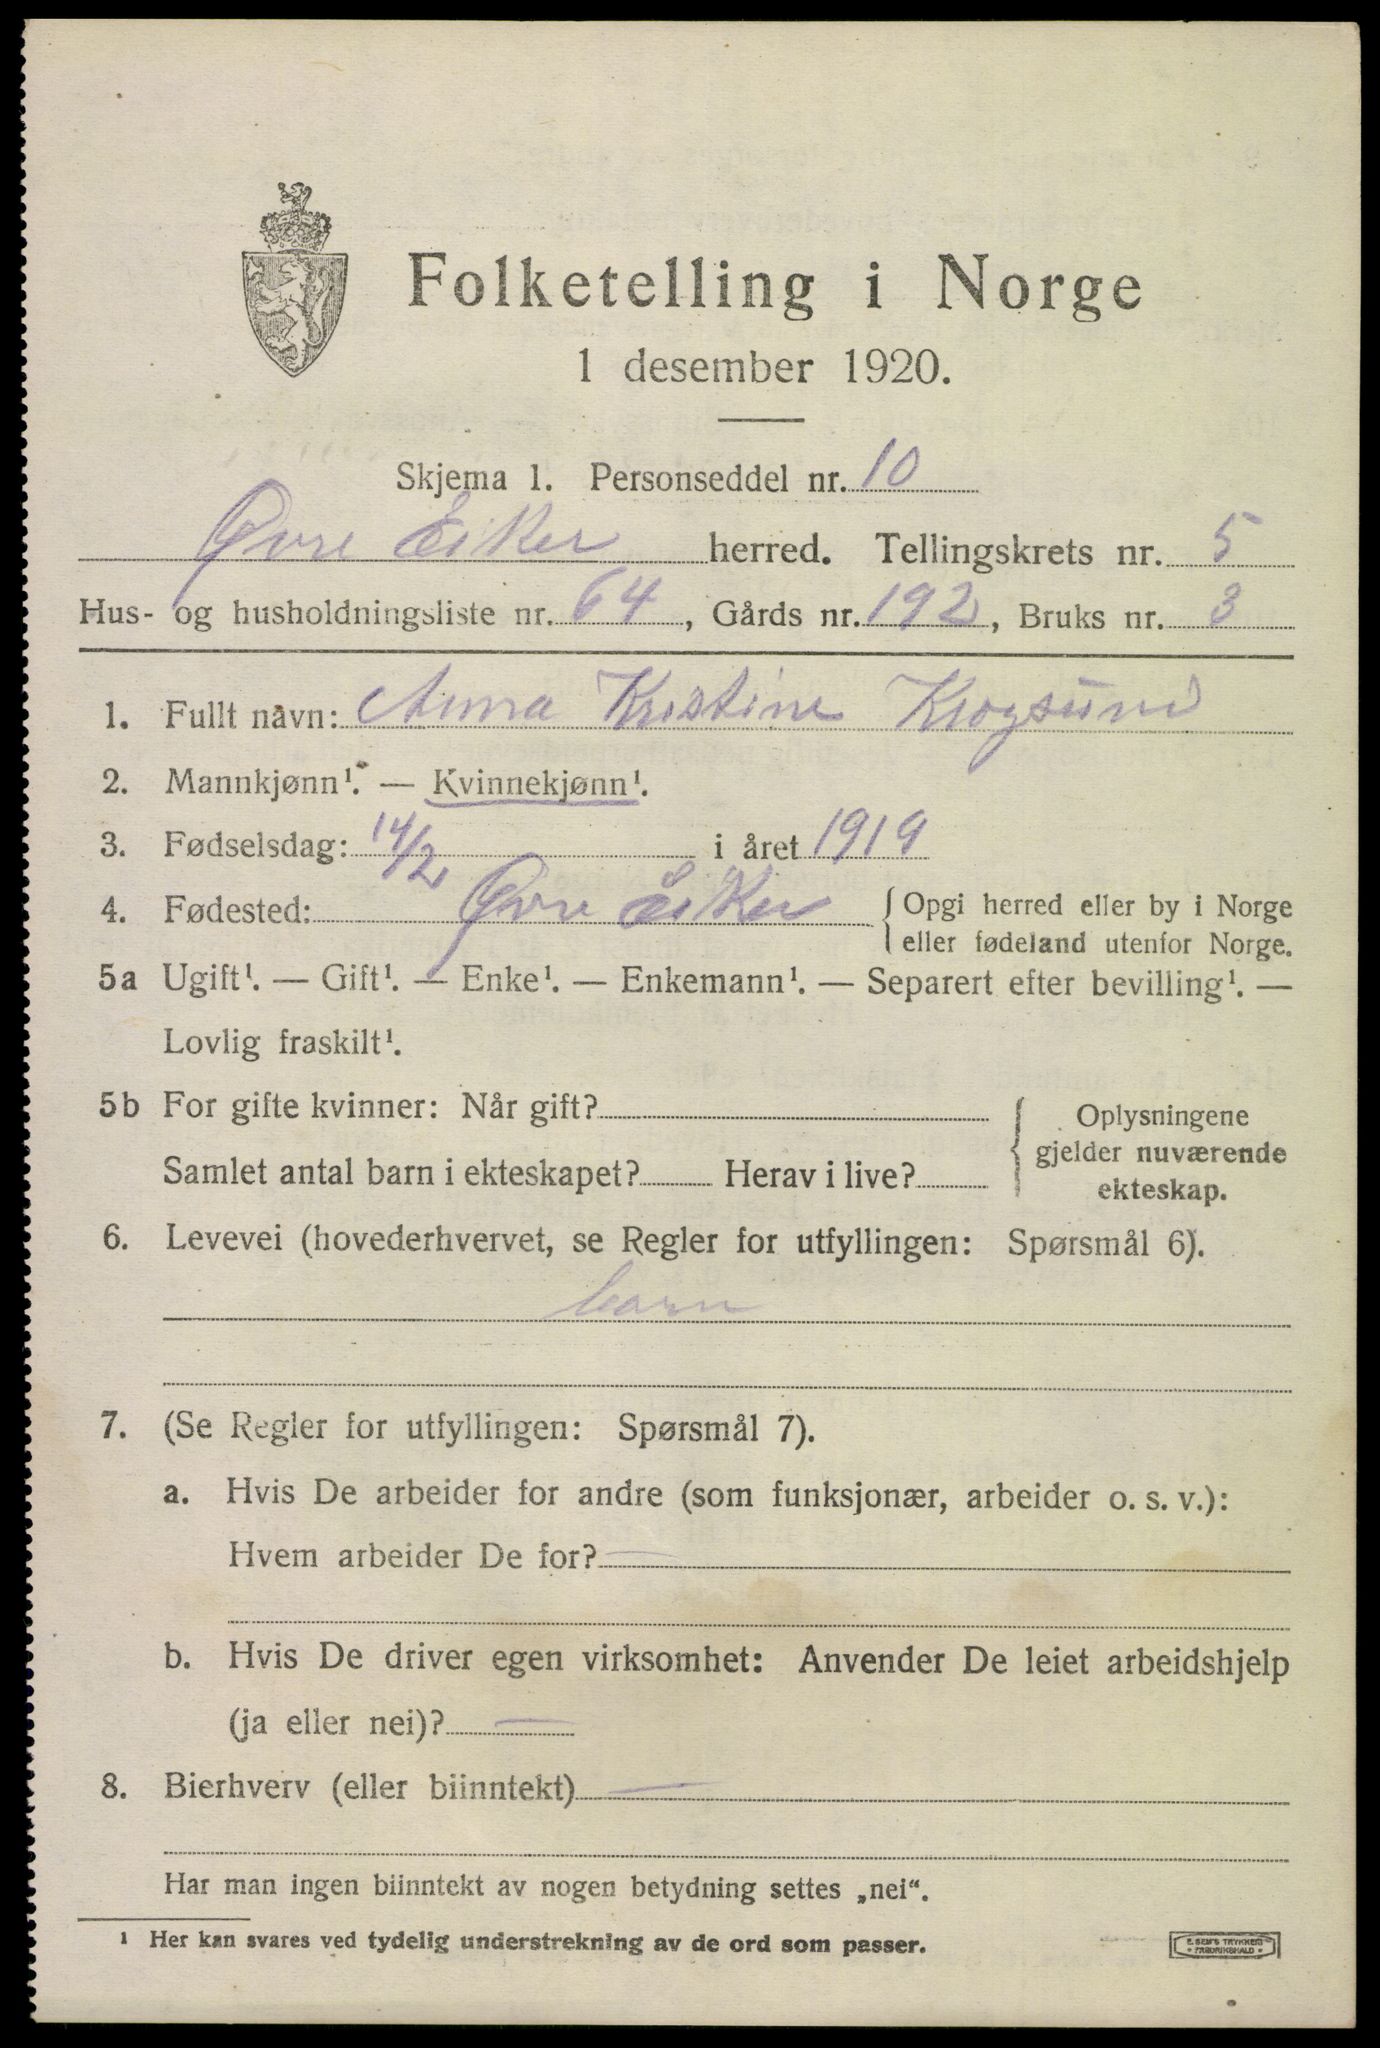 Folketelling i Norge
1 desember 1920.
Skjema 1. Personseddel nr. 10
Øvre Eiker herred. Tellingskrets nr. 5
Hus- og husholdningsliste nr. 64, Gårds nr. 192, Bruks nr. 3
1. Fullt navn: Anna Kristine Krogsund
2. Mannkjønn¹. — Kvinnekjønn¹.
3. Fødselsdag: 14/2 i året 1919
4. Fødested: Øvre Eiker { Opgi herred eller by i Norge
eller fødeland utenfor Norge.
5a Ugift¹. — Gift¹. — Enke¹. — Enkemann¹. — Separert efter bevilling¹. —
Lovlig fraskilt¹.
5b For gifte kvinner: Når gift?
Samlet antal barn i ekteskapet? Herav i live?
{ Oplysningene
gjelder nuværende
ekteskap.
6. Levevei (hovederhvervet, se Regler for utfyllingen: Spørsmål 6).
barn
7. (Se Regler for utfyllingen: Spørsmål 7).
a. Hvis De arbeider for andre (som funksjonær, arbeider o. s. v.):
Hvem arbeider De for? —
b. Hvis De driver egen virksomhet: Anvender De leiet arbeidshjelp
(ja eller nei)? —
8. Bierhverv (eller biinntekt) —
Har man ingen biinntekt av nogen betydning settes „nei“.
¹ Her kan svares ved tydelig understrekning av de ord som passer.
E. SEM'S TRYKKERI
• FREDRIKSHALD •